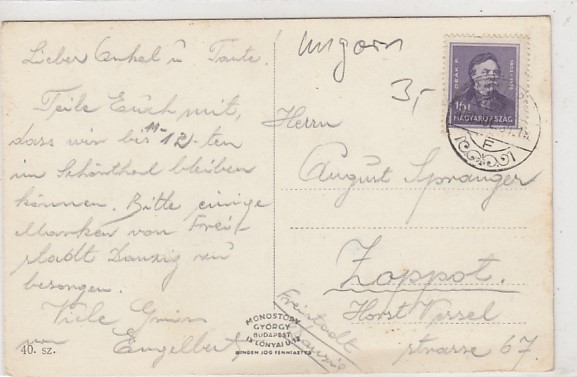 Lieber Onkel u Tante!
Teile Euch mit,
dass wir bis 11-12-ten
im Schönthal bleiben
können. Bitte einige
Marken von Frei-
stadt Danzig zu
besorgen.
Viele Grüsse
von Engelbert
40. sz.
MONOSTORY
GYÖRGY
BUDAPEST
IX LÓNYAI U.
MINDEN JOG FENNTARTVA
Ungarn
3,-
DEÁK F.
16f
MAGYARORSZÁG
E
Herrn
August Spranger
Zoppot.
Freistadt
Danzig
Horst Wessel
strasse 67